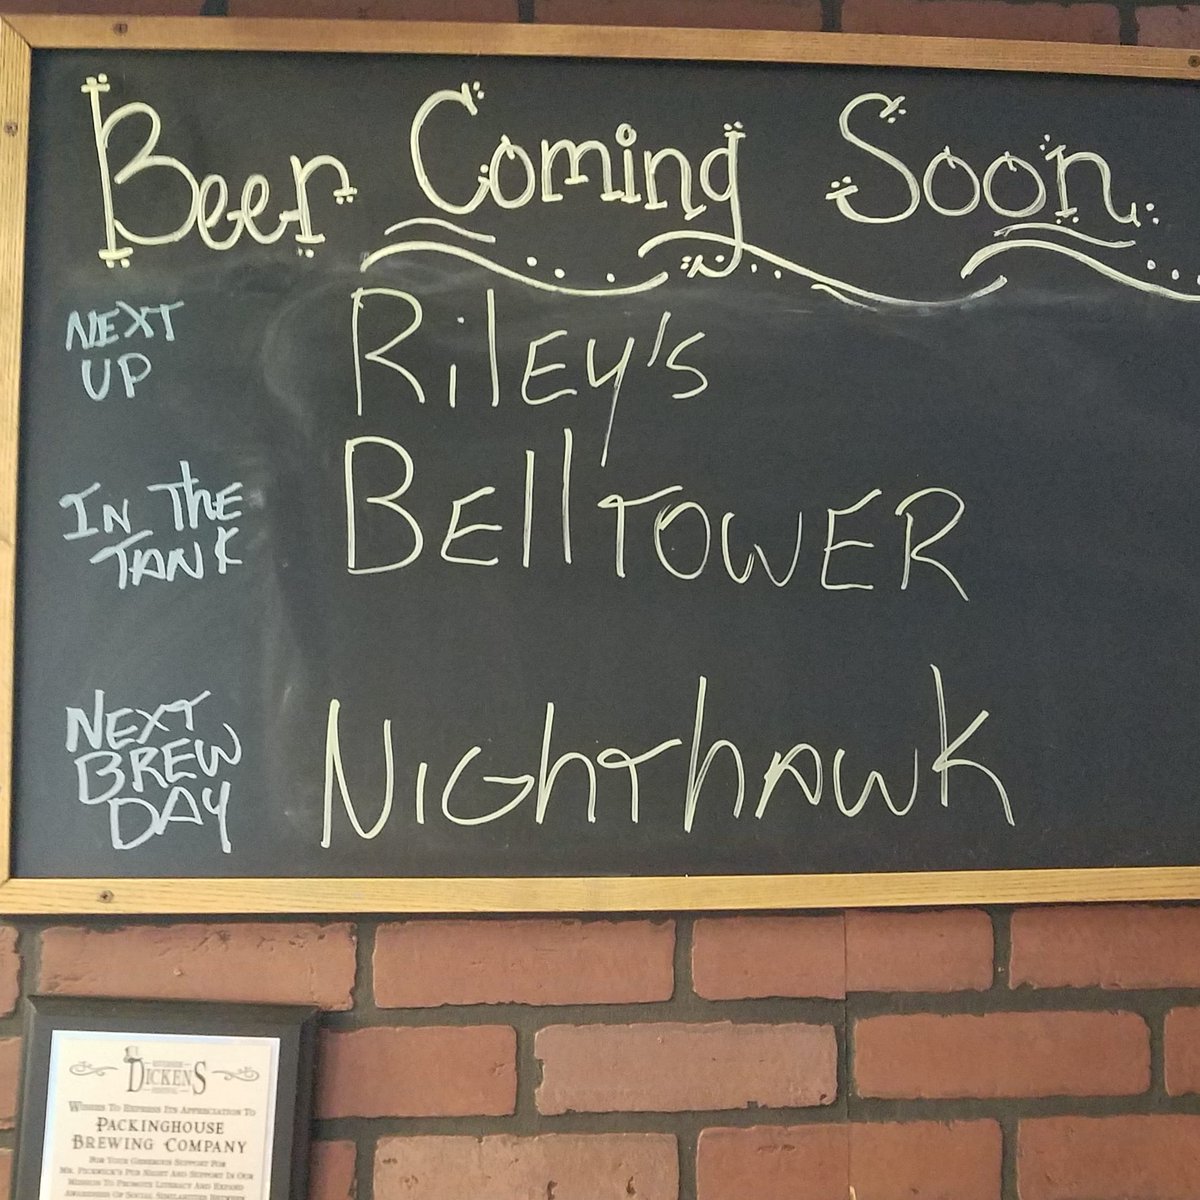 Beer Coming Soon
NEXT
UP
RilEy's
IN The
TANK
BEllTOWER
NEXT
BREW
DAY
NIGhThAWK
RIVERSIDE
DICKENS
FESTIVAL
WISHES TO EXPRESS ITS APPRECIATION TO
PACKINGHOUSE
BREWING COMPANY
FOR YOUR GENEROUS SUPPORT FOR
MR. PICKWICK'S PUB NIGHT AND SUPPORT IN OUR
MISSION TO PROMOTE LITERACY AND EXPAND
AWARENESS OF SOCIAL SIMILARITIES BETWEEN